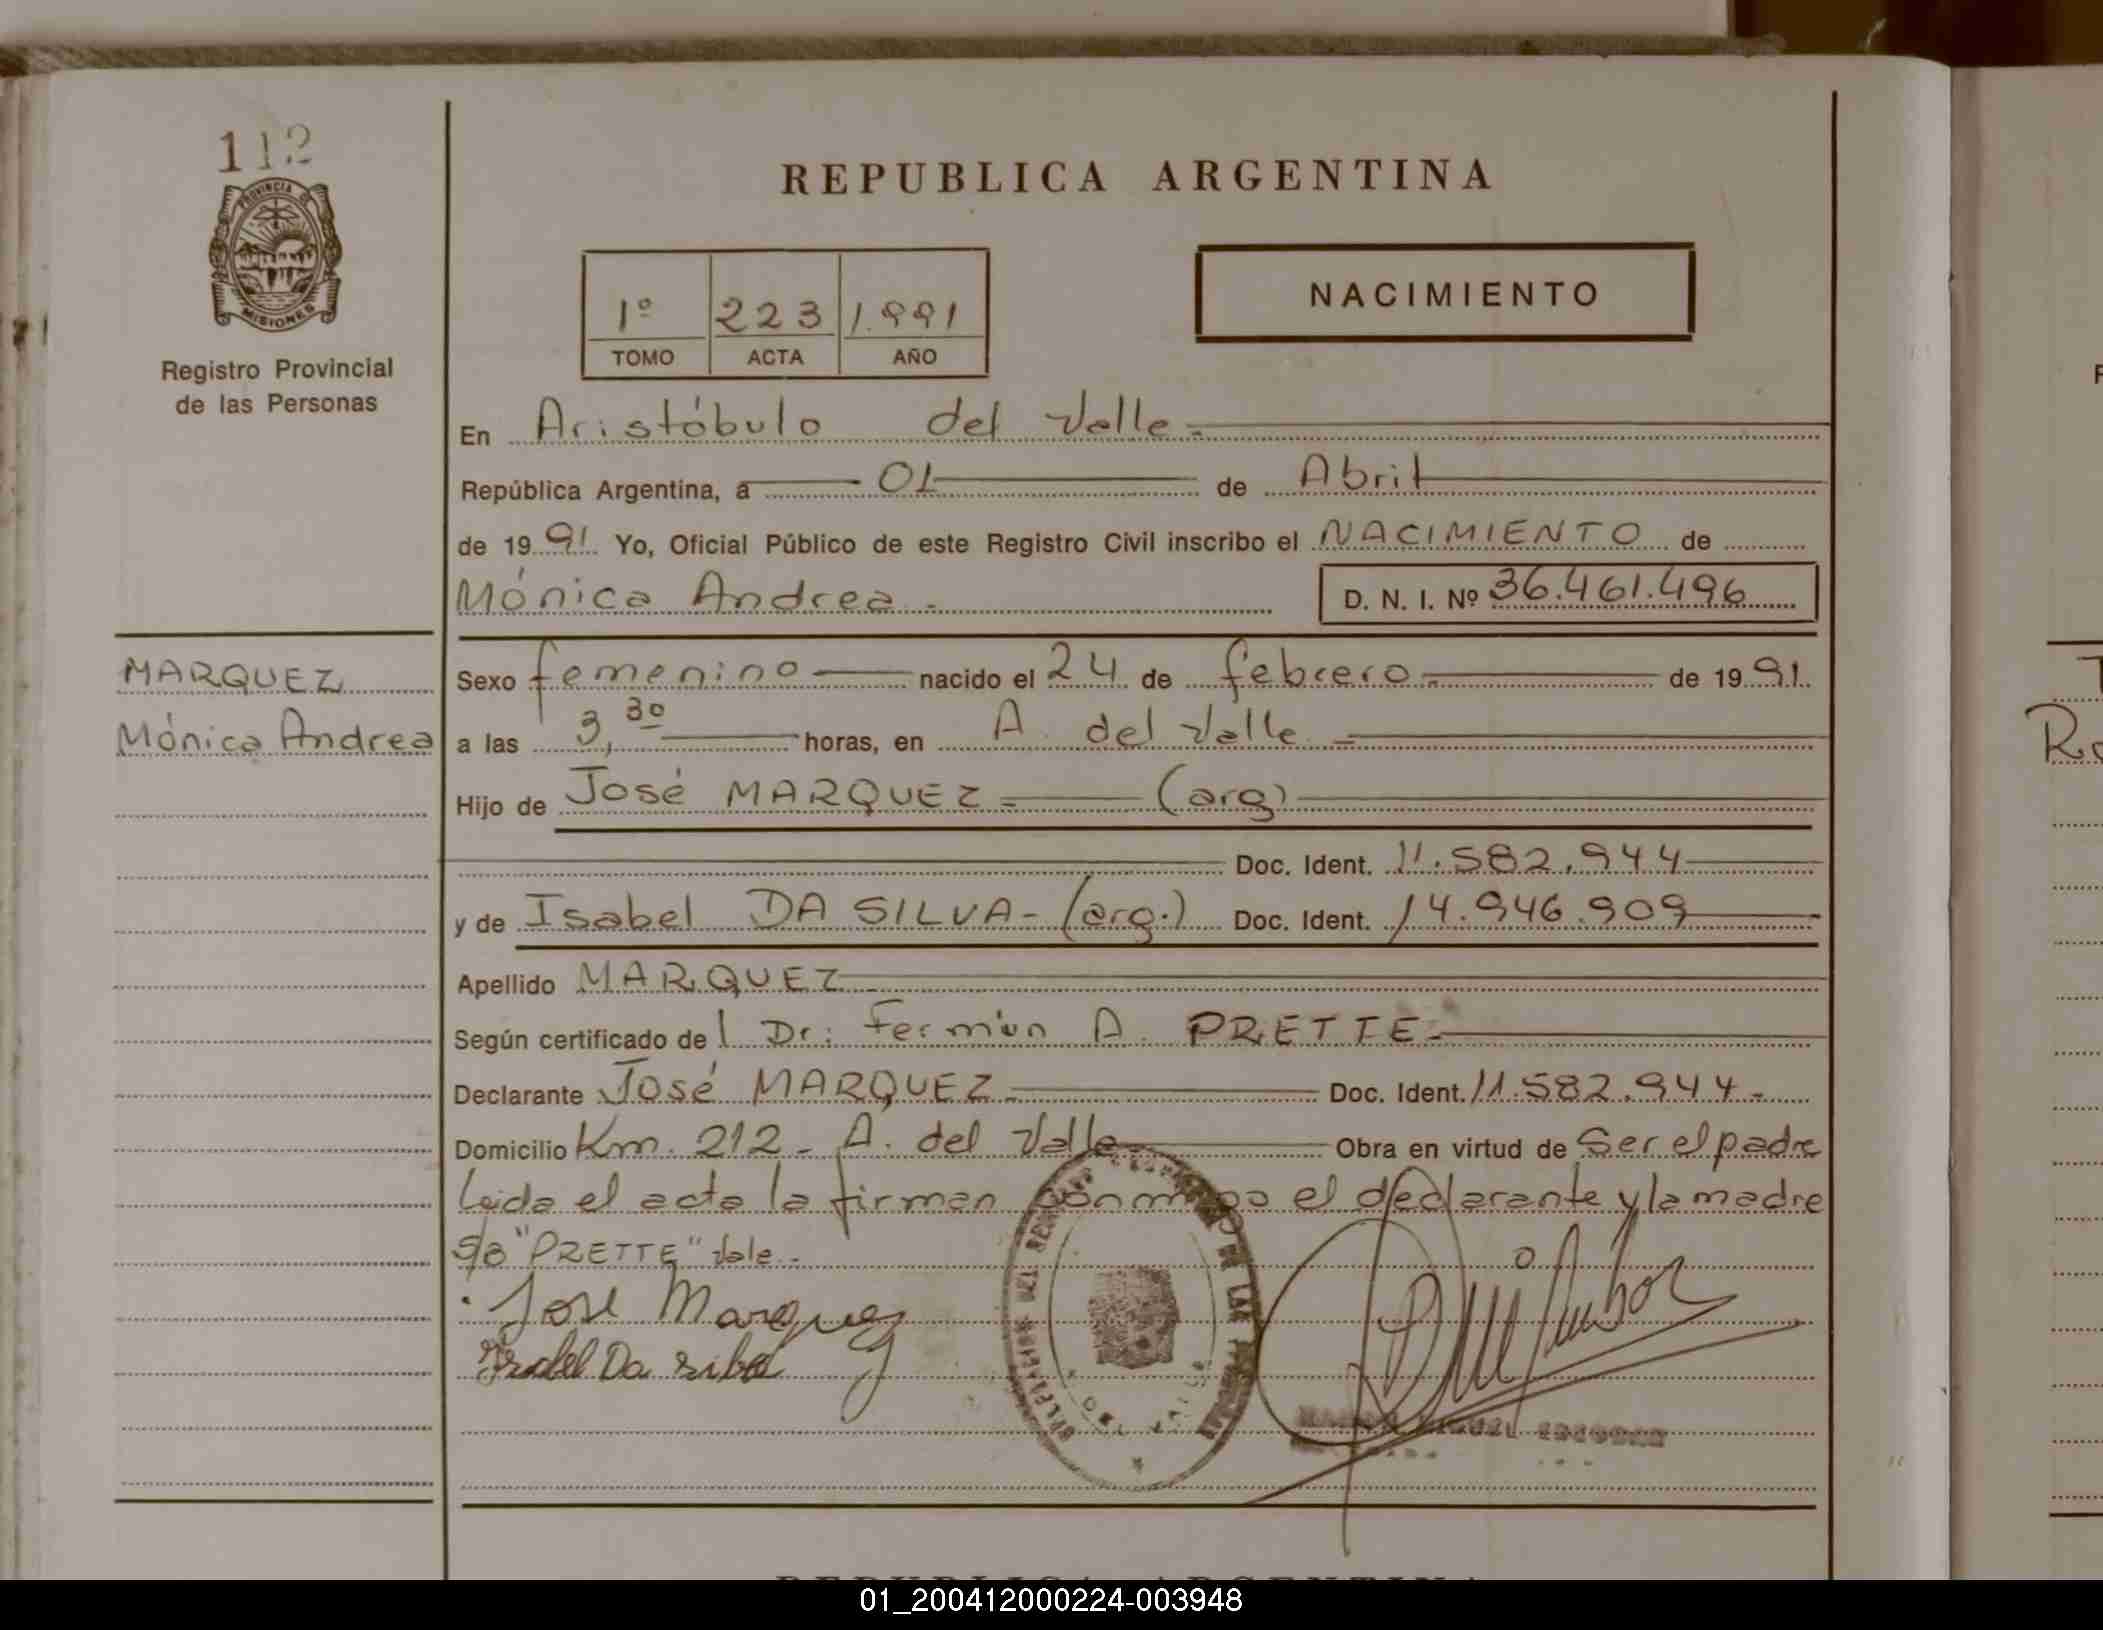 112
PROVINCIA DE
MISIONES
Registro Provincial
de las Personas
MARQUEZ
Mónica Andrea
REPUBLICA ARGENTINA
1º 223 1.991
TOMO ACTA AÑO
NACIMIENTO
En Aristóbulo del Valle.-
República Argentina, a 01 de Abril
de 1991. Yo, Oficial Público de este Registro Civil inscribo el NACIMIENTO de
Mónica Andrea.- D. N. I. Nº 36.461.496
Sexo femenino nacido el 24 de febrero.- de 1991.
a las 3,30 horas, en A. del Valle.-
Hijo de José MARQUEZ.- (arg)
Doc. Ident. 11.582.944
y de Isabel DA SILVA- (arg.) Doc. Ident. 14.946.909
Apellido MARQUEZ.-
Según certificado del Dr: Fermín A. PRETTE.-
Declarante José MARQUEZ.- Doc. Ident. 11.582.944.-
Domicilio Km. 212- A. del Valle Obra en virtud de Ser el padre
Leida el acta la firman conmigo el declarante y la madre
S/B "PRETTE" Vale.-
Jose Marquez
Isabel Da silva
MIGUEL ESCOBAR
REPUBLICA ARGENTINA
01_200412000224-003948